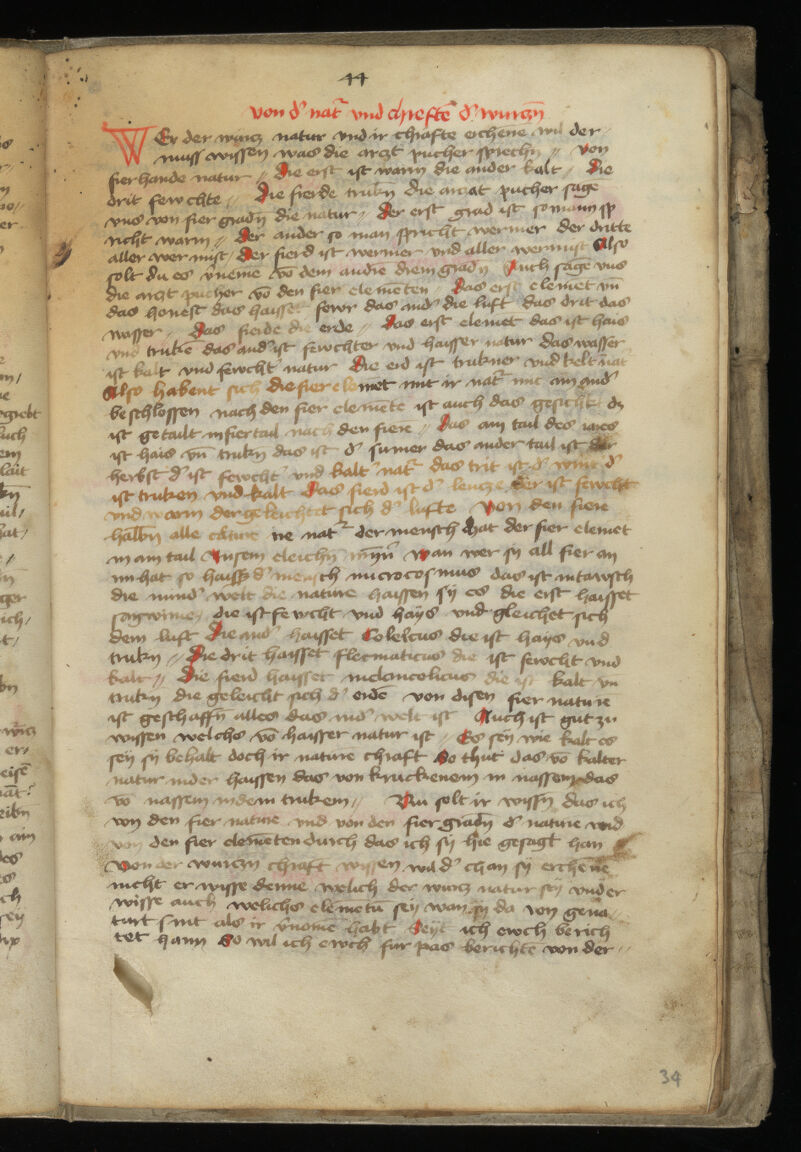 44
von d' nat' vnd chrefftē d' wurczn̄
WEr der wurcz natur vnd ir chrafte erchene wil der
muss wissen was die arczt pucher sprechn̄ von
fierhande natur Die erst ist warm die ander kalt Die
drit fewchte Die fierde trukn̄ die arczat pucher sage
vns von fier gradn̄ die natur Der erst grad ist so mann sp
richt warm Der ander so man spricht wermer der dritte
aller wermist Der fierd ist wermer vnd aller wermist Also
solt du es v'neme vō dem andre drein gradn̄ Auch sagē vns
die arczt pucher vō den fier elemetēn Das erst elemet vn̄
das hohest das haisset fewr das and' die luft das drit das
wasser Das fierde die erde Das erst elemet das ist hais
vnd trukē das and' ist fewchter vnd haisser natur das wasser
ist kalt vnd fewcht' natur Die erd ist trukner vnd kelt' nat'
Also habent sich die fier elemet mit ir nat' mit ain and'
beschlossen nach den fier elemēte ist auch das gesicht dz
ist getailt in fier tail nach den fiere Das ain tail des iares
ist hais vn̄ trukn̄ das ist d' sumer das ander tail ist der
herbst d' ist fewcht' vnd kalt' nat' das trit ist d' wint' d'
ist truken vnd kalt Das fierd ist d' lencze der ist fewcht
vnd warm der geleichtet sich d' lufte Von den fiere
halbn̄ alle nat' der mensch hat der fier elemet
in ain tail wan wer sy all fier an
im hat so haisst d' mensch microcosmus das ist in tawsch
die mind' welt die nature haissen sy es die erst haisset
sangwinie die ist fewcht vnd hays vnd gleichet sich
dem luft Die and' haisset Colelcus die ist hays vnd
trukn̄ Die drit haisset flecmaticus die ist fewcht vnd
kalt Die fierd haisset melancolicus die ist kalt vn̄
trukn̄ die geleicht sich d' erdē von disen fier nature
ist geschaffn̄ alles das in d' welt ist Auch ist gut zu
wissen welchs vō haisser natur ist Es sey wie kalt es
sey sy behalt doch ir nature chraft So thut das vō kalter
natur in der haissen das von kruckenem in nassem das
vō nassem in dem trukem Nu solt ir wissn̄ das ich
von den fier nature vnd von den fier gradn̄ d' nature vnd
von den fier elemēten durch das ich sy hie gesagt han
Von der wurczn chraft wissen wil d' chan sy erchene
nicht er wisse denne welich der wurcz natur sey vnd er
wisse auch welichs elemētū sey wan sy da von gena
turt sint als ir v'nomē habt Seyt ich ewch berich
tet hann So wil ich ewch fur pas berichtē von der
34